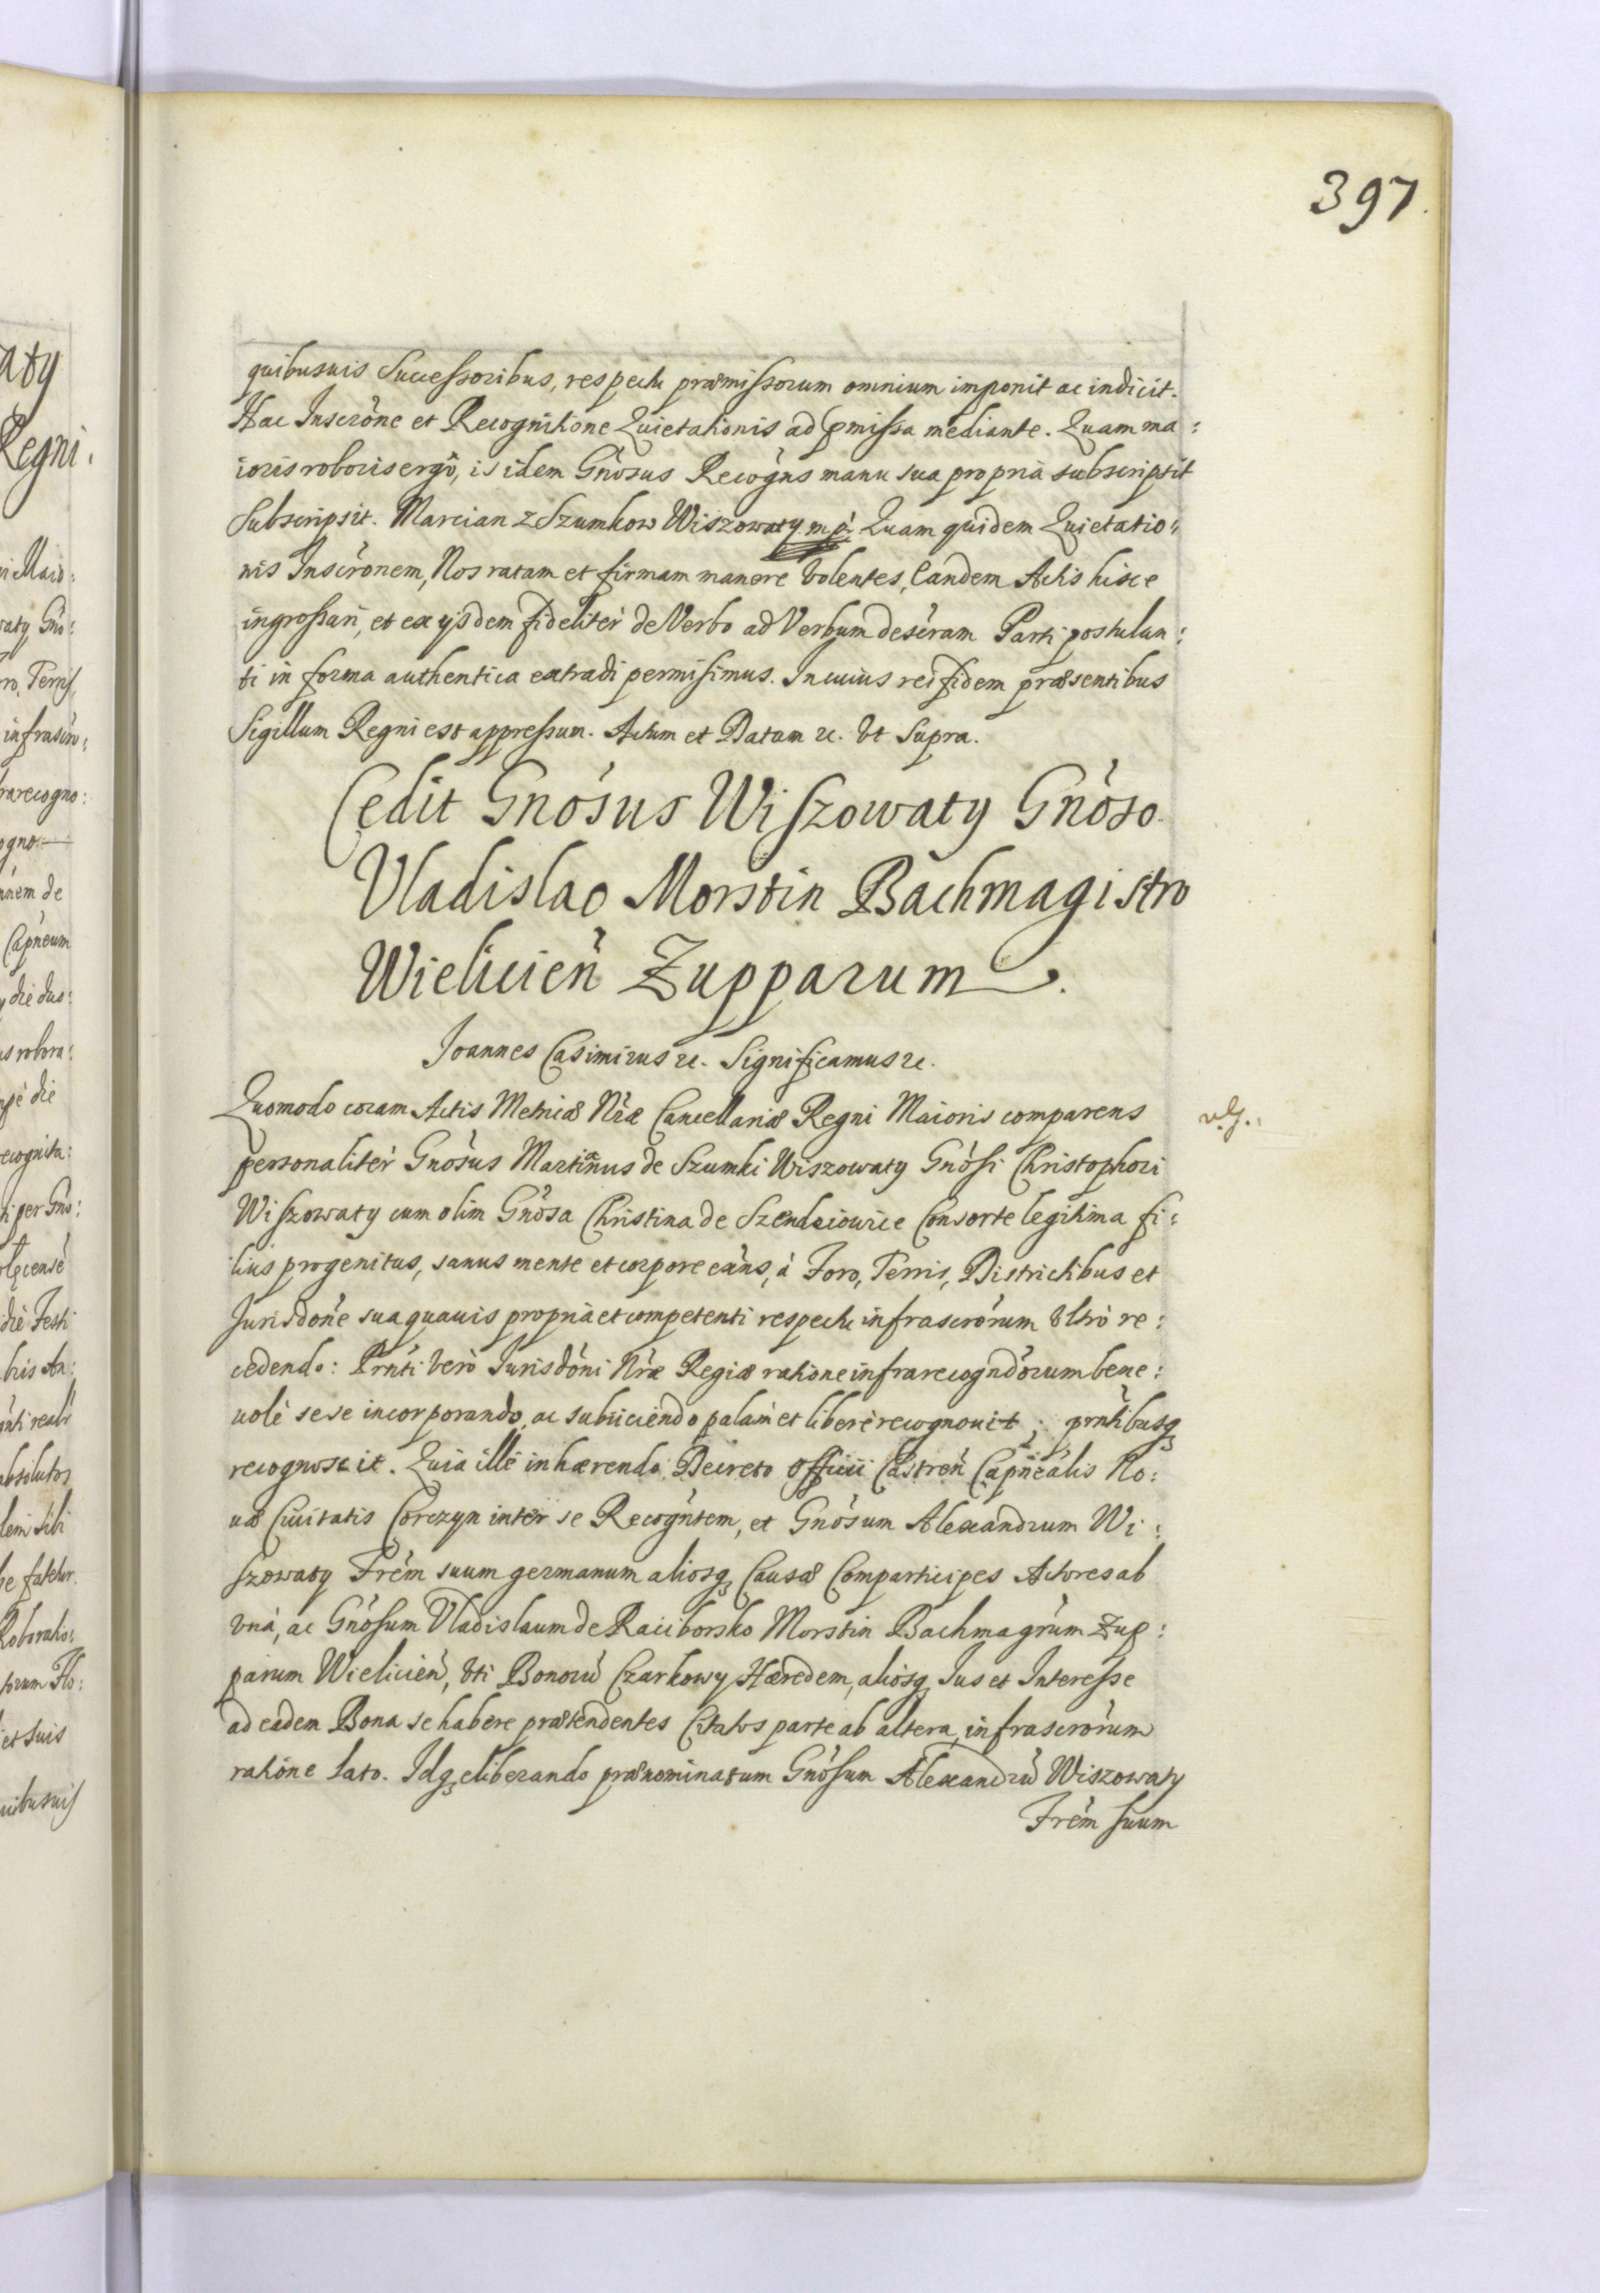 397.
quibusuis Successoribus, respectu præmissorum omnium imponit ac indicit.
Hac Inscrõne et Recognitione Quietationis ad pmissa mediante. Quam ma:
ioris roboris ergõ, is idem Gnõsus Recogns manu sua propria subscripsit
Subscripsit. Marcian z Szumkow Wiszowaty mp. Quam quidem Quietatio:
nis Inscrõnem, Nos ratam et firmam manere volentes, Eandem Actis hisce
ingrossari, et ex ijsdem fideliter de Verbo ad Verbum desõram Parti postulan:
ti in forma authentica extradi permisimus. In cuius rei fidem præsentibus
Sigillum Regni est appressum. Actum et Datum rc. Vt Supra.
Cedit Gnõsus Wiszowaty Gnõso
Vladislao Morstin Bachmagistro
Wieliciens Zupparum.
Joannes Casimirus rc. Significamus rc.
Quomodo coram Actis Metricæ Nræ Cancellariæ Regni Maioris comparens
personaliter Gnõsus Martianus de Szumki Wiszowaty Gnõsi Christophori
Wiszowaty cum olim Gnõsa Christina de Szendziowice Consorte legitima fi:
lius progenitus, sanus mente et corpore exñs, à Foro, Terris, Districtibus et
Jurisdõne sua quauis propria et competenti respectu infrascrõrum Vltrò re:
cedendo: Prñti verò Jurisdõni Nræ Regiæ ratione infrarecogndõrum bene:
uolè sese incorporando, ac subiiciendo palam et liberè recognouit; prñtibusq
recognoscit. Quia ille inhærendo Decreto Officii Castreñ Capnealis No:
uæ Ciuitatis Corczyn inter se Recogñtem, et Gnõsum Alexandrum Wi:
szowaty Frẽm suum germanum aliosq Causæ Comparticipes Actores ab
vna, ac Gnõsum Vladislaum de Raciborsko Morstin Bachmagrũm Zup:
parum Wielicieñ, Vti Bonorũ Czarkowy Hæredem, aliosq Jus et Interesse
ad eadem Bona se habere prætendentes Citatos parte ab altera, infrascrõrum
rãtione lato. Idq eliberando prænominatum Gnõsum Alexandrũ Wiszowaty
Frẽm suum